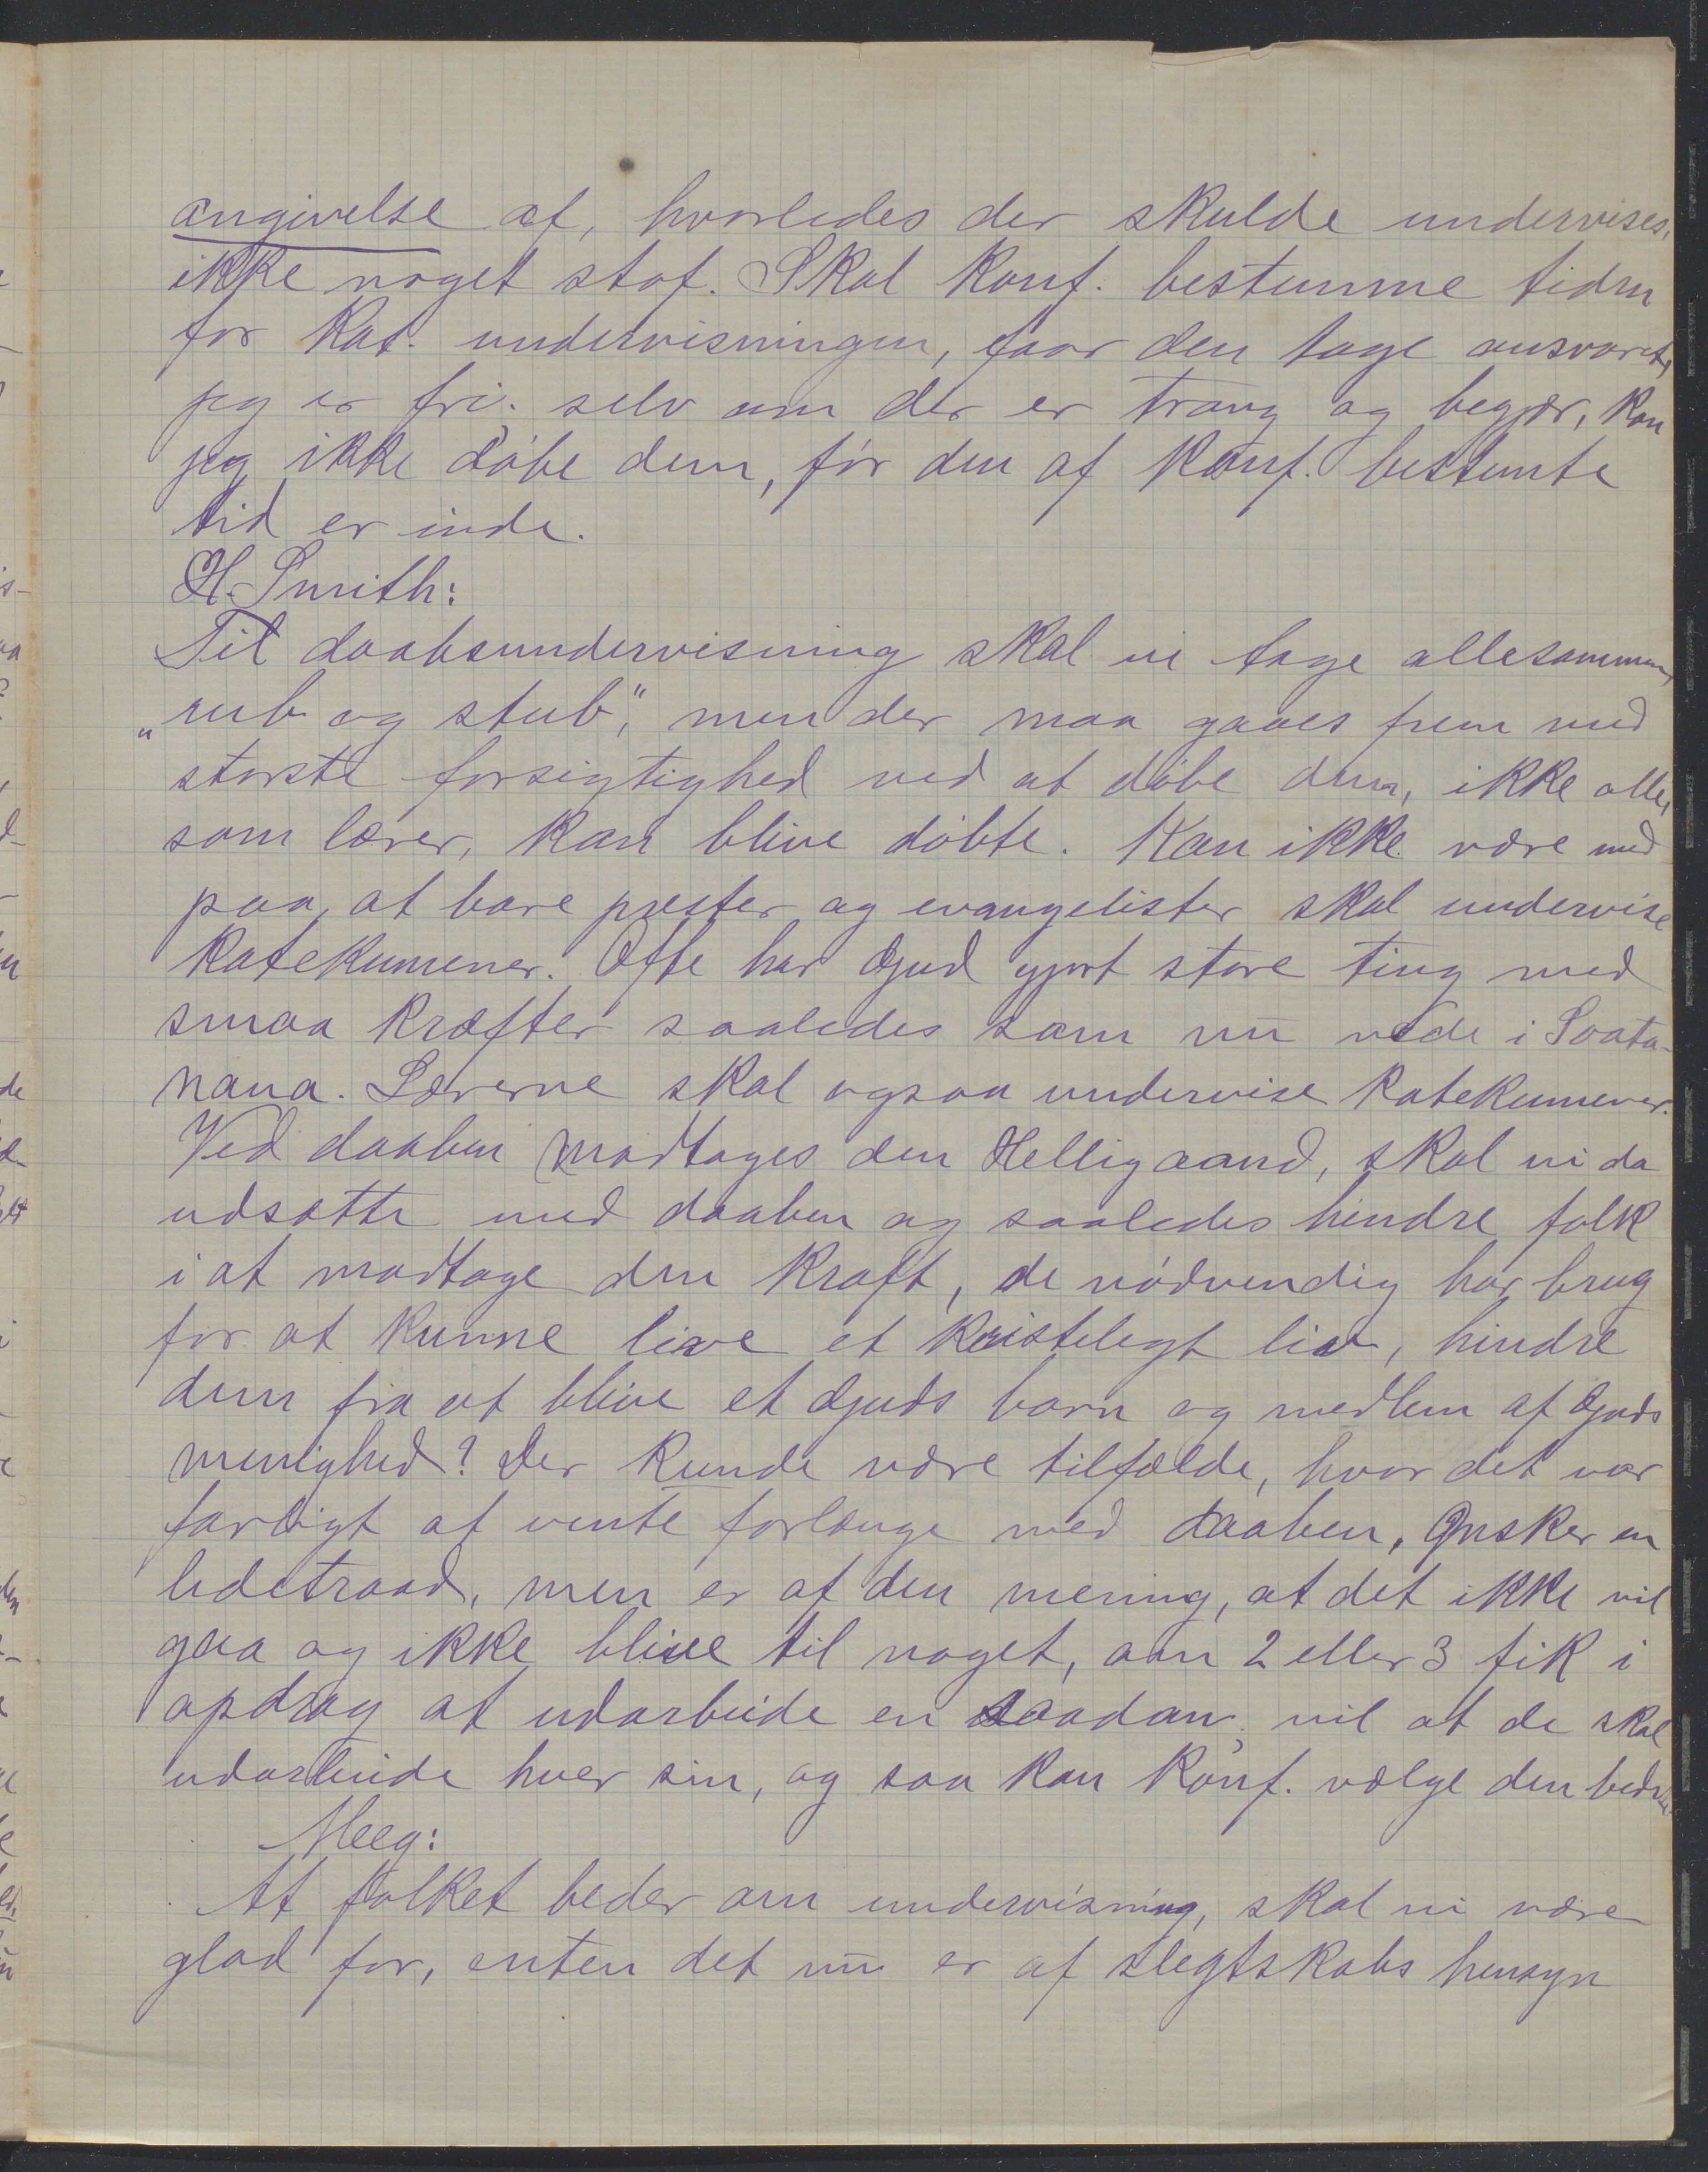 angivelse af, hvorledes der skulde undervises,
ikke noget stof. Skal Konf. bestemme tiden
for Kat. undervisningen, faar den tage ansvaret,
jeg er fri; selv om der er trang og begjær, kan
jeg ikke döbe dem, før den af Konf. bestemte
tid er inde.
H. Smith:
Til daabsundervisning skal vi tage allesammen,
"rub og stub", men der maa gaaes frem med
største forsigtighed ved at döbe dem, ikke alle,
som lærer, kan blive döbte. Kan ikke være med
paa, at bare prester og evangelister skal undervise
Katekumener. Ofte har Gud gjort store ting med
smaa kræfter saaledes som nu nede i Soata-
nana. Lærerne skal ogsaa undervise Katekumener.
Ved daaben modtages den Helligaand, skal vi da
udsætte med daaben og saaledes hindre folk
i at modtage den kraft, de nödvendig har brug
for at kunne leve et kristeligt liv, hindre
dem fra at blive et Guds barn og medlem af Guds
menighed? Der kunde være tilfælde, hvor det var
farligt at vente forlænge med daaben. Ønsker en
ledetraad, men er af den mening, at det ikke vil
gaa og ikke blive til noget, om 2 eller 3 fik i
opdrag at udarbeide en saadan; vil at de skal
udarbeide hver sin, og saa kan Konf. vælge den bedste.
Meeg:
At folket beder om undervisning, skal vi være
glad for, enten det nu er af slegtskabs hensyn